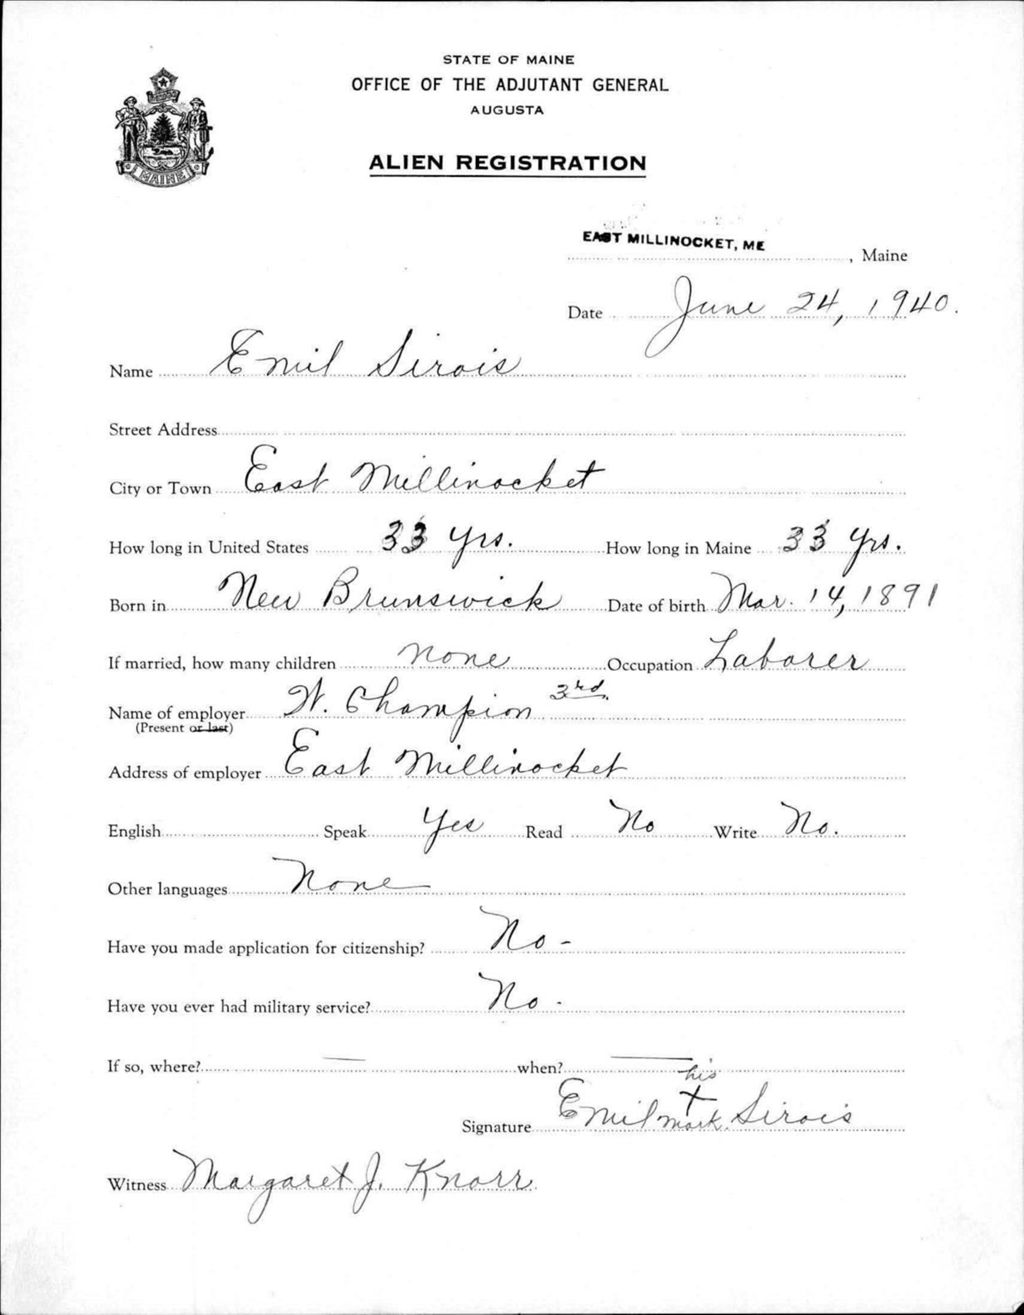 STATE OF MAINE
OFFICE OF THE ADJUTANT GENERAL
AUGUSTA
ALIEN REGISTRATION
MAINE
EAST MILLINOCKET, ME , Maine
Date June 24, 1940.
Name Emil Sirois
Street Address
City or Town East Millinocket
How long in United States 33 yrs. How long in Maine 33 yrs.
Born in New Brunswick Date of birth Mar. 14, 1891
If married, how many children none Occupation Laborer
Name of employer W. Champion 3rd.
(Present or last)
Address of employer East Millinocket
English Speak Yes Read No Write No.
Other languages None
Have you made application for citizenship? No -
Have you ever had military service? No -
If so, where? — when? —
his
Signature Emil + Sirois
mark.
Witness Margaret J. Knorr